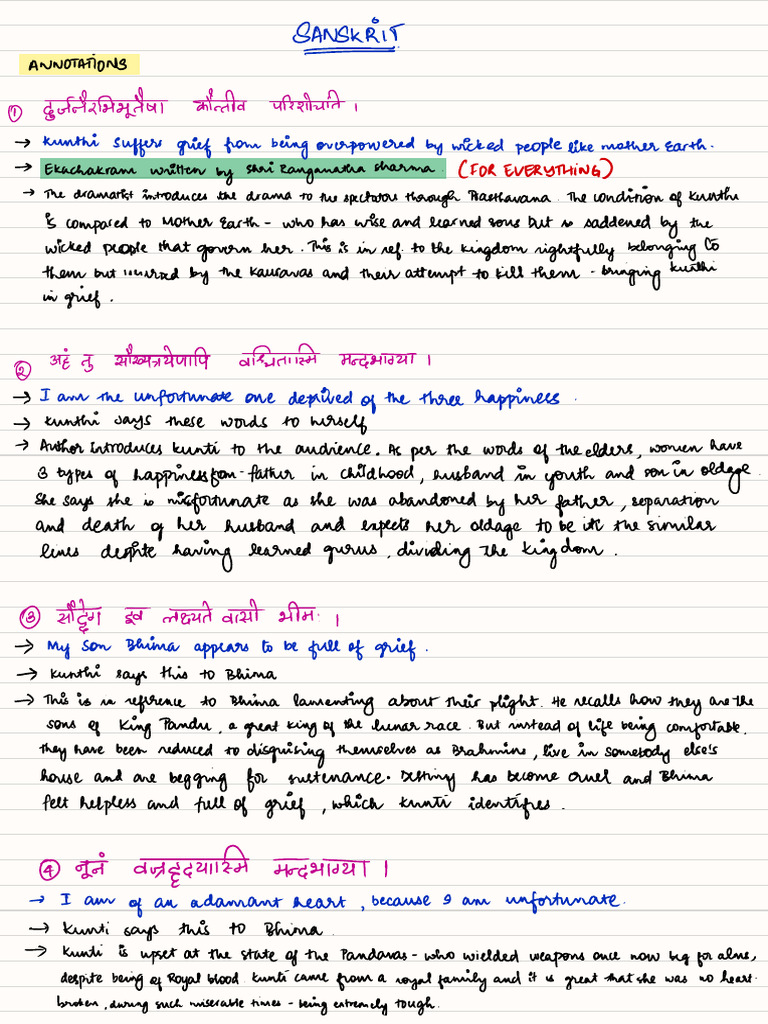 SANSKRIT
ANNOTATIONS
① दुर्जनैरभिभूतैषा कौन्तीव परिशोचति ।
→ Kunthi suffers grief from being overpowered by wicked people like mother Earth.
→ Ekachakram written by Shri Ranganatha Sharma. (FOR EVERYTHING)
→ The dramatist introduces the drama to the spectators through Prasthavana. The condition of Kunthi
is compared to Mother Earth - who has wise and learned sons but is saddened by the
wicked people that govern her. This is in ref. to the kingdom rightfully belonging to
them but usurped by the Kauravas and their attempt to kill them - bringing kunthi
in grief.
② अहं तु सौख्यत्रयेणापि वञ्चितास्मि मन्दभाग्या ।
→ I am the unfortunate one deprived of the three happiness.
→ Kunthi says these words to herself
→ Author Introduces kunti to the audience. As per the words of the elders, women have
3 types of happiness from - father in childhood, husband in youth and son in oldage.
She says she is misfortunate as she was abandoned by her father, separation
and death of her husband and expects her oldage to be in the similar
lines despite having learned gurus, dividing the kingdom.
③ सोद्वेग इव लक्ष्यते वासो भीमः ।
→ My son Bhima appears to be full of grief.
→ Kunthi says this to Bhima
→ This is in reference to Bhima lamenting about their plight. He recalls how they are the
sons of King Pandu, a great king of the lunar race. But instead of life being comfortable,
they have been reduced to disguising themselves as Brahmins, live in somebody else's
house and are begging for sustenance. Destiny has become cruel and Bhima
felt helpless and full of grief, which Kunti identifies.
④ नूनं वज्रहृदयास्मि मन्दभाग्या ।
→ I am of an adamant heart, because I am unfortunate.
→ Kunti says this to Bhima.
→ Kunti is upset at the state of the Pandavas - who wielded weapons once now beg for alms,
despite being of Royal blood. Kunti came from a royal family and it is great that she was no heart
broken, during such miserable times - being extremely tough.